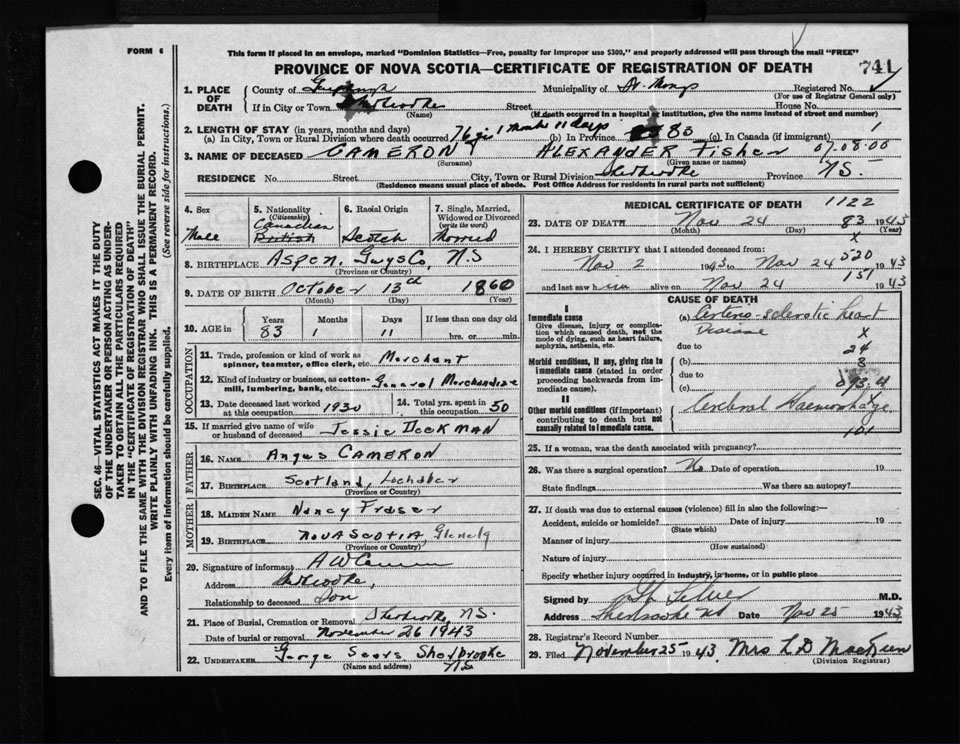 FORM 6
This form if placed in an envelope, marked "Dominion Statistics—Free, penalty for improper use $300," and properly addressed will pass through the mail "FREE"
PROVINCE OF NOVA SCOTIA—CERTIFICATE OF REGISTRATION OF DEATH
741
1. PLACE OF DEATH
County of Guysborough Municipality of St. Mary's Registered No.
(For use of Registrar General only)
If in City or Town Sherbrooke Street House No.
(Name) (If death occurred in a hospital or institution, give the name instead of street and number)
2. LENGTH OF STAY (in years, months and days)
(a) In City, Town or Rural Division where death occurred 76 yrs 1 Month 11 days (b) In Province 83 (c) In Canada (if immigrant) 1
3. NAME OF DECEASED CAMERON ALEXANDER Fisher 07.08.00
(Surname) (Given name or names)
RESIDENCE No. Street City, Town or Rural Division Sherbrooke Province N.S.
(Residence means usual place of abode. Post Office Address for residents in rural parts not sufficient)
4. Sex Male
5. Nationality (Citizenship) Canadian British
6. Racial Origin Scotch
7. Single, Married, Widowed or Divorced (write the word) Married
8. BIRTHPLACE Aspen, Guys Co, N.S
(Province or Country)
9. DATE OF BIRTH October 13th 1860
(Month) (Day) (Year)
10. AGE in Years Months Days If less than one day old
83 1 11 hrs. or min.
OCCUPATION
11. Trade, profession or kind of work as spinner, teamster, office clerk, etc. Merchant
12. Kind of industry or business, as cotton-mill, lumbering, bank, etc. General Merchandise
13. Date deceased last worked at this occupation 1930
14. Total yrs. spent in this occupation 50
15. If married give name of wife or husband of deceased Jessie DECKMAN
FATHER
16. NAME Angus CAMERON
17. BIRTHPLACE Scotland, Lochaber
(Province or Country)
MOTHER
18. MAIDEN NAME Nancy Fraser
19. BIRTHPLACE NOVA SCOTIA Glenelg
(Province or Country)
20. Signature of informant A W Cameron
Address Sherbrooke,
Relationship to deceased Son
21. Place of Burial, Cremation or Removal Sherbrooke, N.S.
Date of burial or removal November 26 1943
22. UNDERTAKER George Sears Sherbrooke
(Name and address) N.S
MEDICAL CERTIFICATE OF DEATH 1122
23. DATE OF DEATH Nov 24 83 1943
(Month) (Day) (Year)
X
24. I HEREBY CERTIFY that I attended deceased from: 520
Nov 2 1943 to Nov 24 1943
151
and last saw him alive on Nov 24 1943
CAUSE OF DEATH
I
Immediate cause
Give disease, injury or complication which caused death, not the mode of dying, such as heart failure, asphyxia, asthenia, etc.
(a) Arterio-sclerotic heart Disease
X
due to
24
Morbid conditions, if any, giving rise to immediate cause (stated in order proceeding backwards from immediate cause).
(b)
8
due to
(c)
II
Other morbid conditions (if important) contributing to death but not causally related to immediate cause.
Cerebral Haemorrhage
X
101
25. If a woman, was the death associated with pregnancy?
26. Was there a surgical operation? No Date of operation 19
State findings Was there an autopsy?
27. If death was due to external causes (violence) fill in also the following:—
Accident, suicide or homicide? Date of injury 19
(State which)
Manner of injury
(How sustained)
Nature of injury
Specify whether injury occurred in industry, in home, or in public place
Signed by M.D.
Address Sherbrooke NS Date Nov 25 1943
28. Registrar's Record Number
29. Filed November 25 1943 Mrs L D MacKeen
(Division Registrar)
SEC. 46—VITAL STATISTICS ACT MAKES IT THE DUTY
OF THE UNDERTAKER OR PERSON ACTING AS UNDER-
TAKER TO OBTAIN ALL THE PARTICULARS REQUIRED
IN THE "CERTIFICATE OF REGISTRATION OF DEATH"
AND TO FILE THE SAME WITH THE DIVISION REGISTRAR WHO SHALL ISSUE THE BURIAL PERMIT.
WRITE PLAINLY WITH UNFADING INK. THIS IS A PERMANENT RECORD.
Every item of information should be carefully supplied. (See reverse side for instructions.)